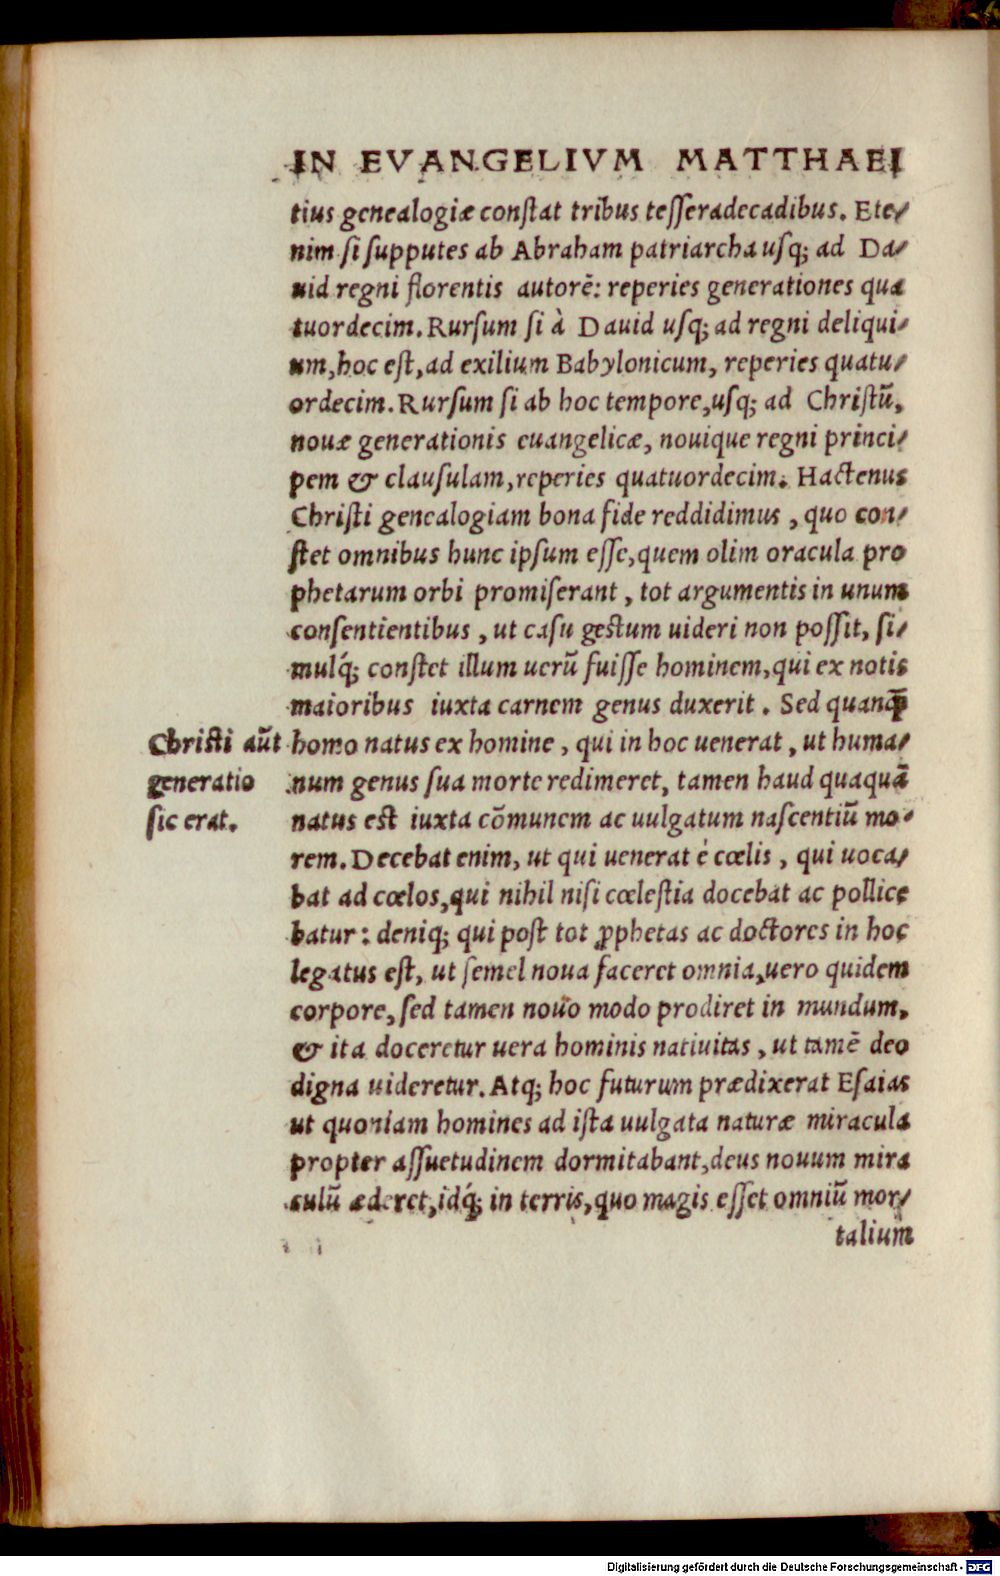 IN EVANGELIVM MATTHAEI
tius genealogiæ constat tribus tesseradecadibus. Ete-
nim si supputes ab Abraham patriarcha usq; ad Da-
uid regni florentis autorē: reperies generationes qua
tuordecim. Rursum si à Dauid usq; ad regni deliqui-
um, hoc est, ad exilium Babylonicum, reperies quatu-
ordecim. Rursum si ab hoc tempore, usq; ad Christū,
nouæ generationis euangelicæ, nouique regni princi-
pem & clausulam, reperies quatuordecim. Hactenus
Christi genealogiam bona fide reddidimus, quo con-
stet omnibus hunc ipsum esse, quem olim oracula pro
phetarum orbi promiserant, tot argumentis in unum
consentientibus, ut casu gestum uideri non possit, si-
mulq́; constet illum uerū fuisse hominem, qui ex notis
maioribus iuxta carnem genus duxerit. Sed quanꝗ̄
Christi aūt
generatio
sic erat.
homo natus ex homine, qui in hoc uenerat, ut huma-
num genus sua morte redimeret, tamen haud quaquā
natus est iuxta cōmunem ac uulgatum nascentiū mo-
rem. Decebat enim, ut qui uenerat è cœlis, qui uoca-
bat ad cœlos, qui nihil nisi cœlestia docebat ac pollice
batur: deniq; qui post tot ꝓphetas ac doctores in hoc
legatus est, ut semel noua faceret omnia, uero quidem
corpore, sed tamen nouo modo prodiret in mundum,
& ita doceretur uera hominis natiuitas, ut tamē deo
digna uideretur. Atq; hoc futurum prædixerat Esaias
ut quoniam homines ad ista uulgata naturæ miracula
propter assuetudinem dormitabant, deus nouum mira
culū æderet, idq́; in terris, quo magis esset omniū mor-
talium
Digitalisierung gefördert durch die Deutsche Forschungsgemeinschaft - DFG